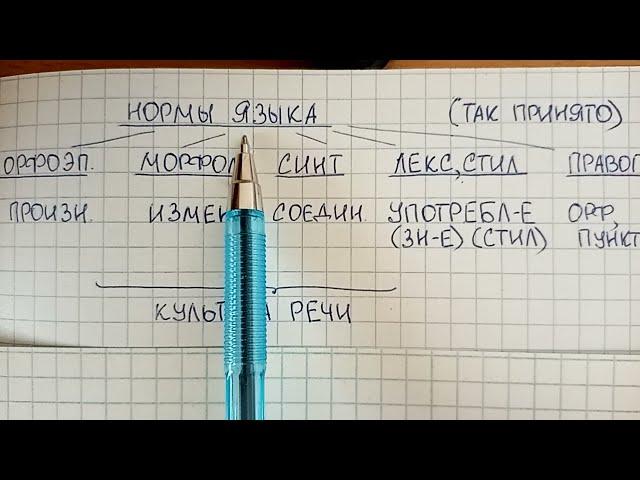 НОРМЫ ЯЗЫКА (ТАК ПРИНЯТО)
ОРФОЭП. МОРФОЛ СИНТ ЛЕКС, СТИЛ ПРАВОП
ПРОИЗН. ИЗМЕН СОЕДИН. УПОТРЕБЛ-Е ОРФ,
(ЗН-Е) (СТИЛ) ПУНКТ
КУЛЬТ А РЕЧИ